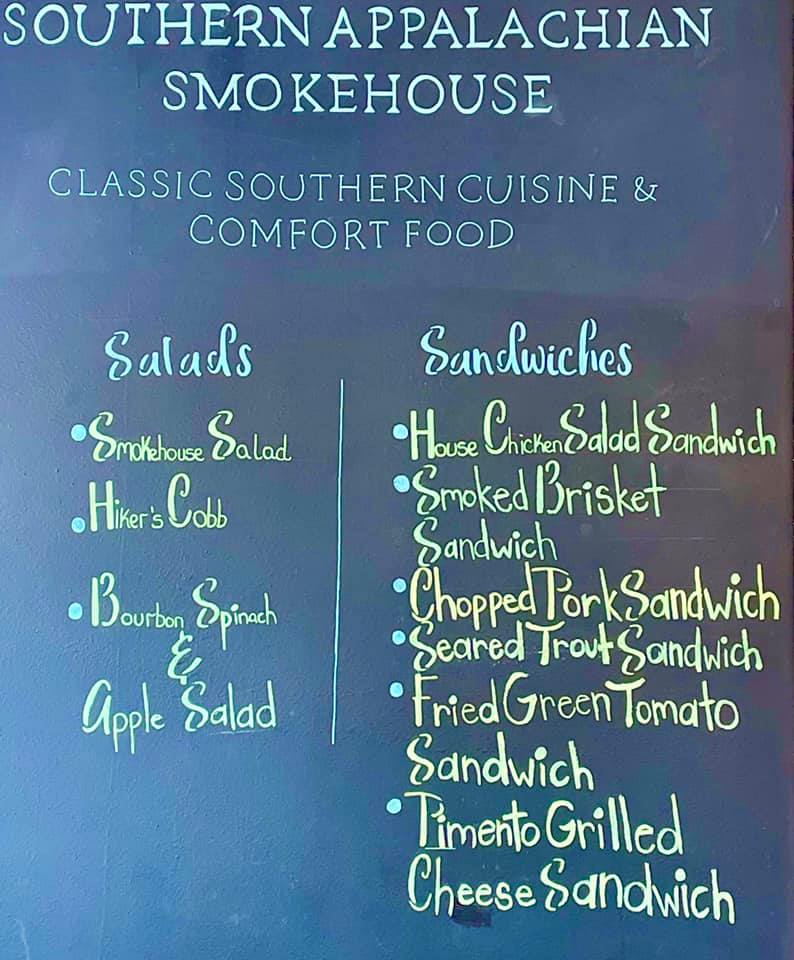 SOUTHERN APPALACHIAN
SMOKEHOUSE
CLASSIC SOUTHERN CUISINE &
COMFORT FOOD
Salads
• Smokehouse Salad
• Hiker's Cobb
• Bourbon Spinach
&
Apple Salad
Sandwiches
• House Chicken Salad Sandwich
• Smoked Brisket
Sandwich
• Chopped Pork Sandwich
• Seared Trout Sandwich
• Fried Green Tomato
Sandwich
• Pimento Grilled
Cheese Sandwich